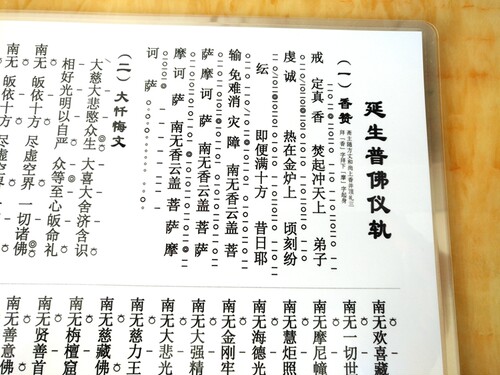 延生普佛仪轨
（一）香赞
戒 定真香 焚起冲天上 弟子
虔诚 热在金炉上 顷刻纷
纭 即便满十方 昔日耶
输 免难消灾障 南无香云盖菩
萨摩诃萨 南无香云盖菩萨
摩诃萨 南无香云盖菩萨摩
诃萨
（二）大忏悔文
大慈大悲愍众生 大喜大舍济含识
相好光明以自严 众等至心皈命礼
南无 皈依十方 尽虚空界 一切诸佛
南无 皈依十方 尽虚空界
南无欢喜藏
南无一切世
南无摩尼幢
南无慧炬照
南无海德光
南无金刚牢
南无大强精
南无大悲光
南无慈力王
南无慈藏佛
南无栴檀窟
南无贤善首
南无善意佛